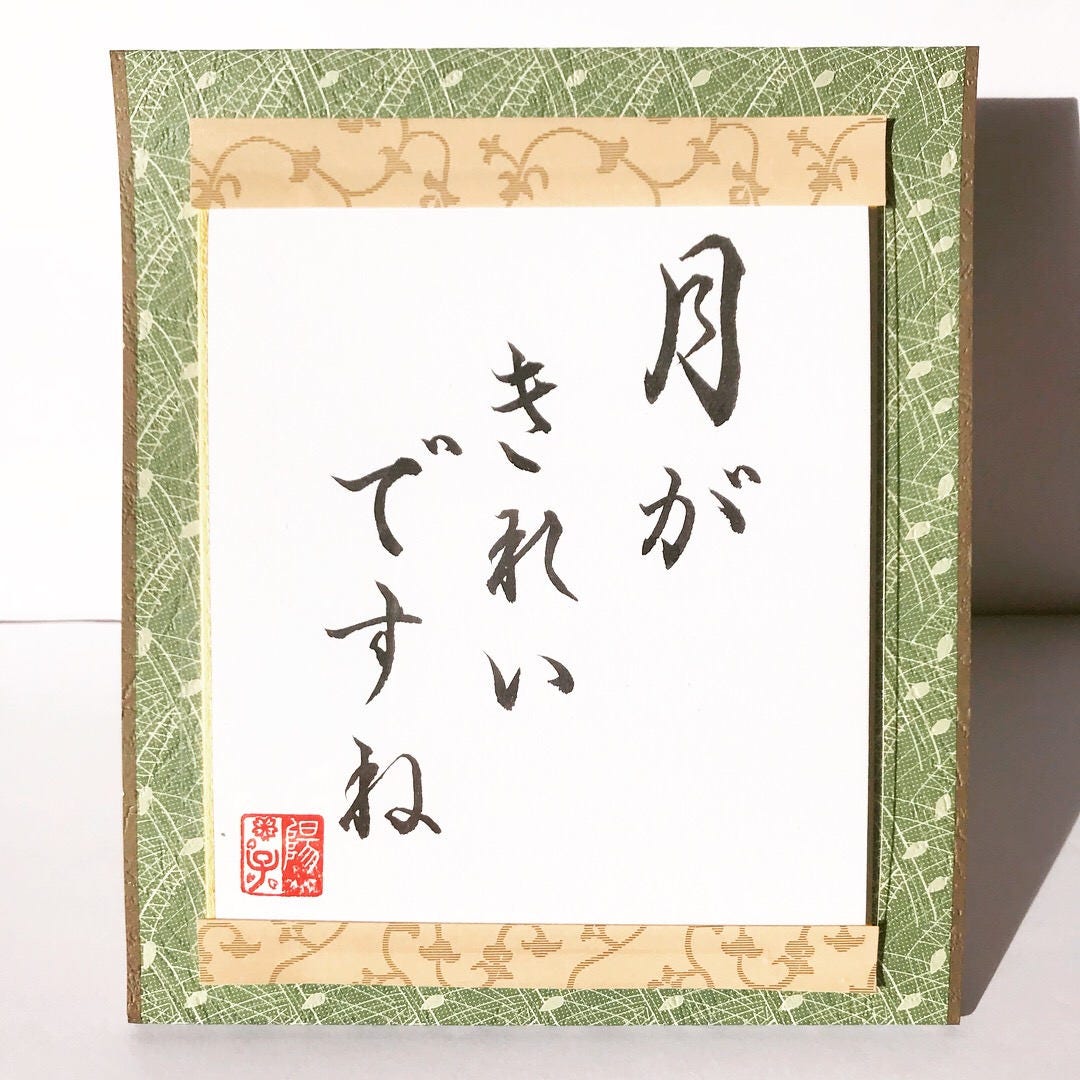 月が
きれい
ですね
陽子